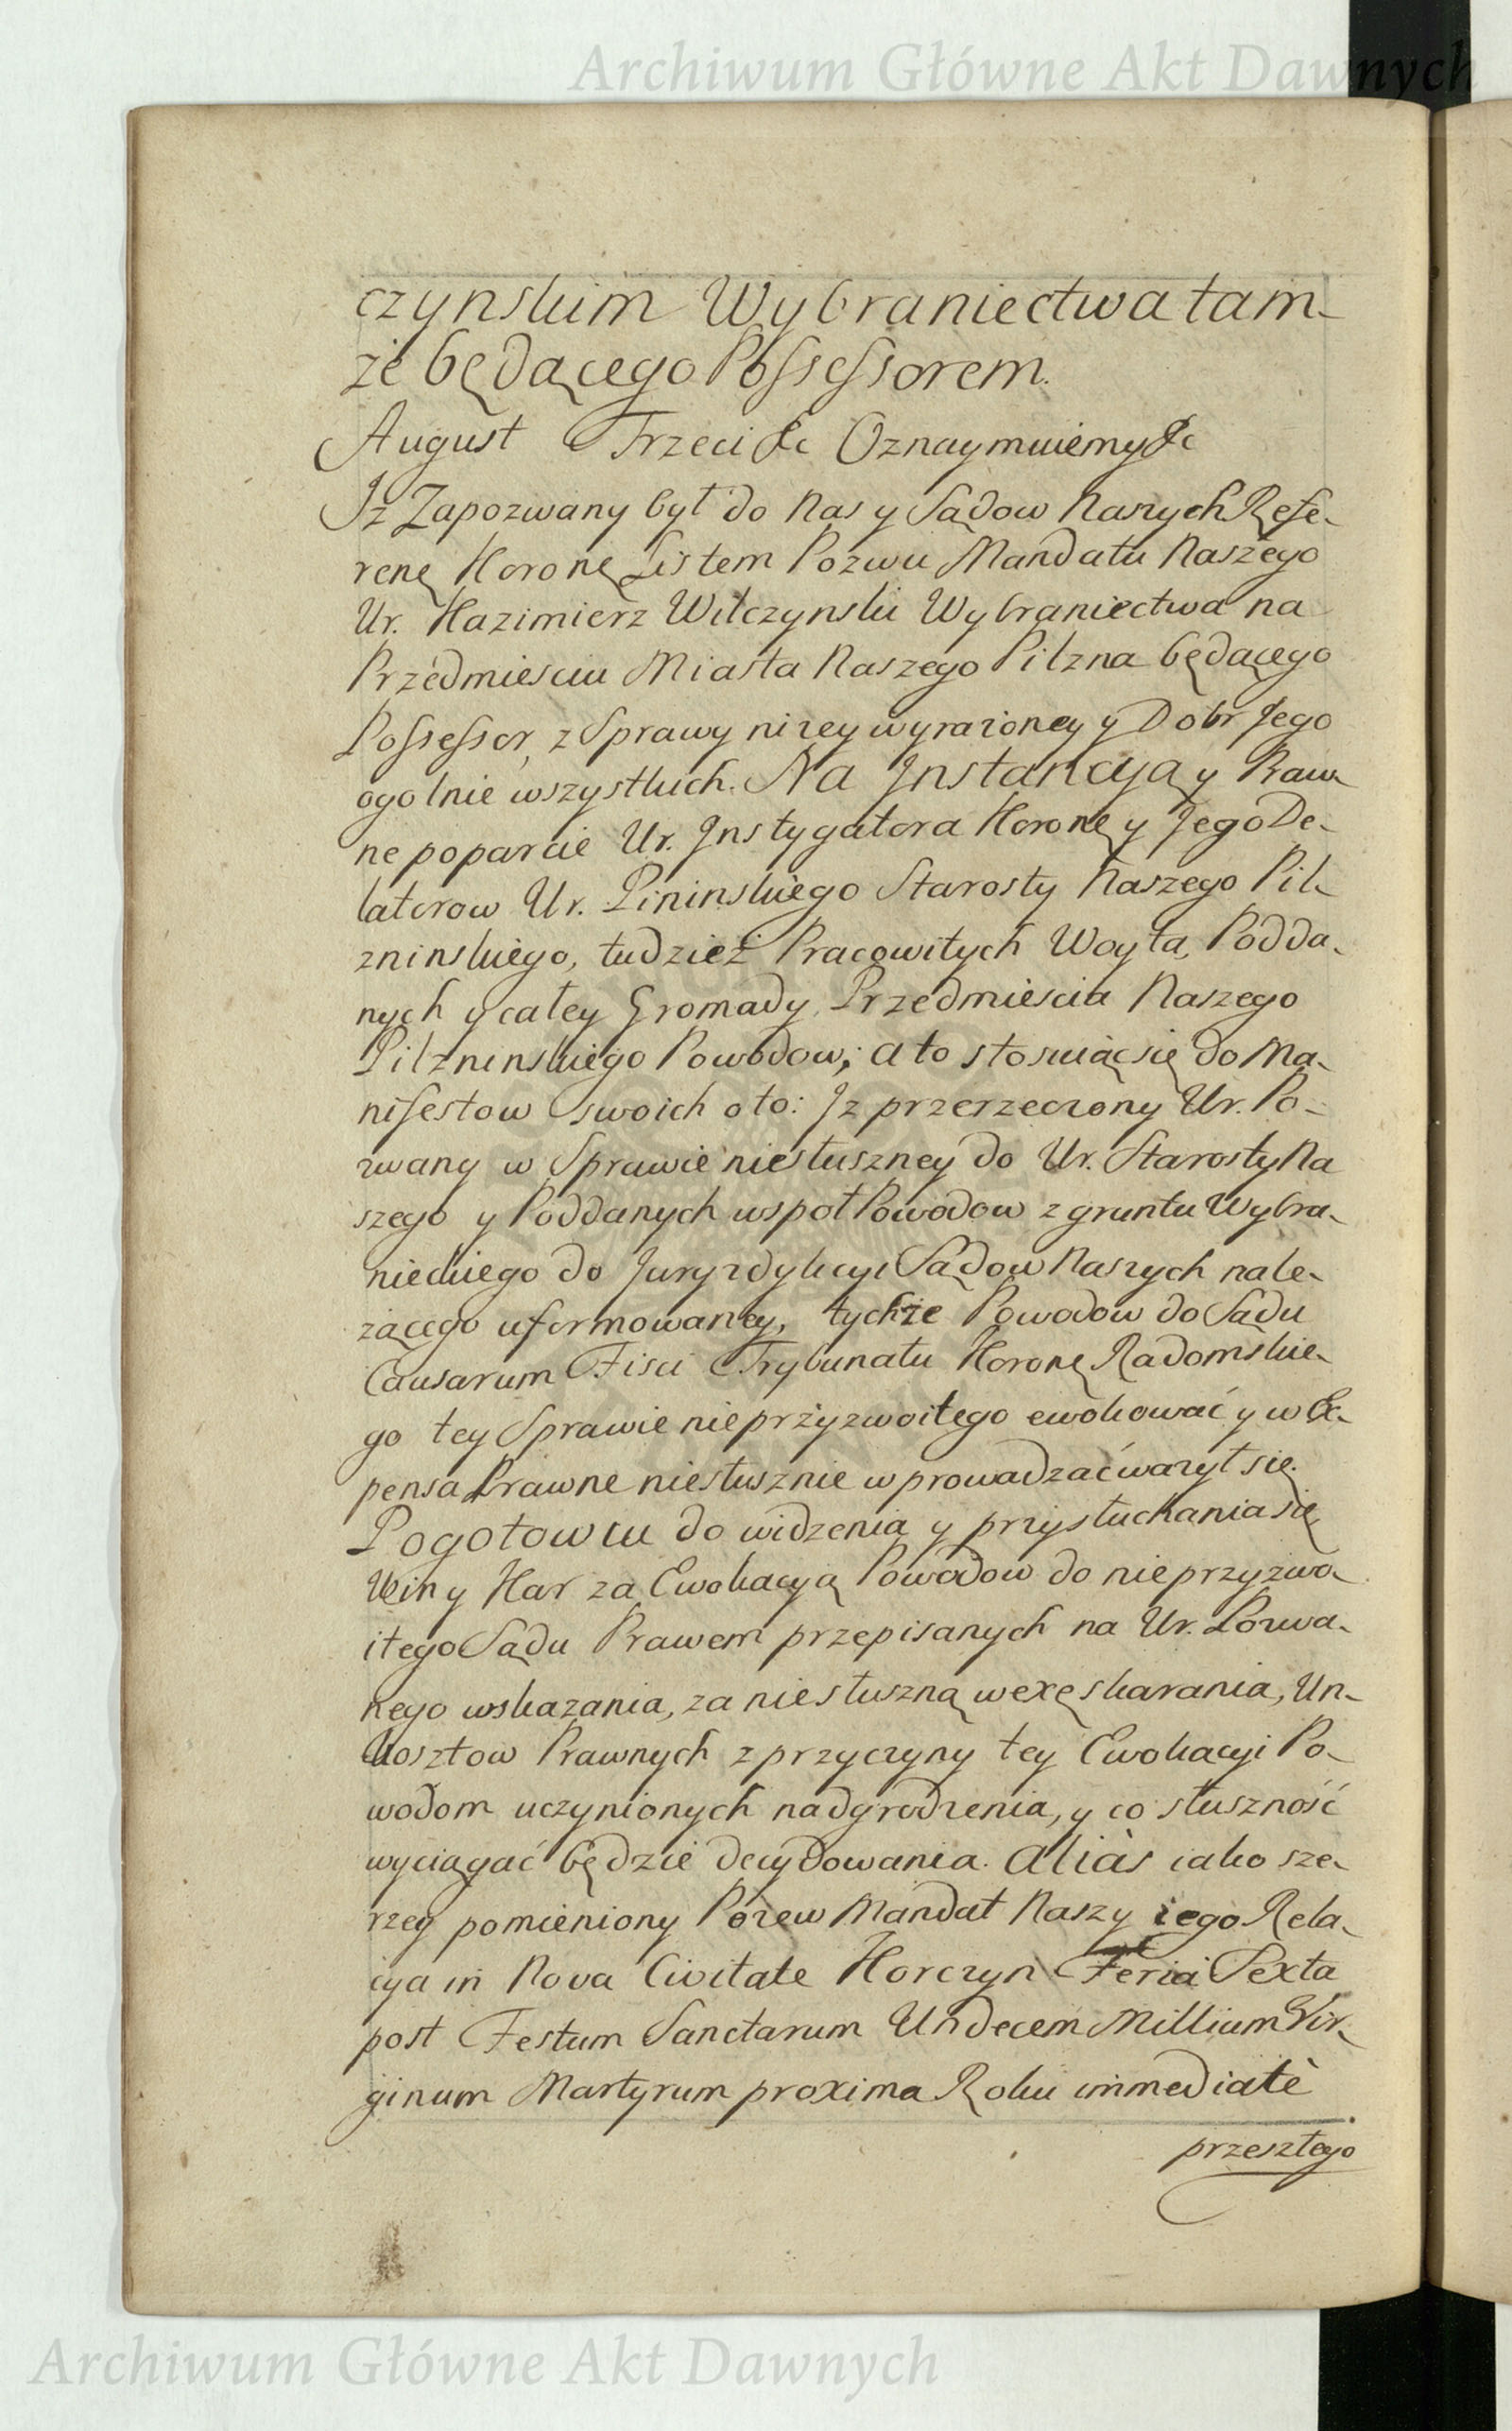 Archiwum Główne Akt Dawnych
czynskim Wybraniectwa tam-
że będącego Possessorem.
August Trzeci &c Oznaymuiemy &c
Iż Zapozwany był do Nas y Sądow Naszych Refe-
renę Koronę Listem Pozwu Mandatu Naszego
Ur. Kazimierz Wilczynski Wybraniectwa na
Przedmiesciu Miasta Naszego Pilzna będącego
Possessor, z Sprawy niżey wyrażoney y Dobr Jego
ogolnie wszystkich. Na Instancyją y Praw-
ne poparcie Ur. Instygatora Koronę y Jego De-
latorow Ur. Pininskiego Starosty Naszego Pil-
zninskiego, tudzież Pracowitych Woyta, Podda-
nych y całey Gromady Przedmieścia Naszego
Pilznenskiego Powodow; a to stosuiąc się do Ma-
nifestow swoich oto: Iż przerzeczony Ur. Po-
zwany w Sprawie niesłuszney do Ur. Starosty Na
szego y Poddanych wspoł Powodow z gruntu Wybra-
nieckiego do Juryzdykcyi Sądow Naszych nale-
żącego uformowaney, tychże Powodow do Sądu
Causarum Fisci Trybunału Koronę Radomskie-
go tey Sprawie nieprzyzwoitego ewokować y w Ex-
pensa Prawne niesłusznie wprowadzać ważył się.
Pogotowiu do widzenia y przysłuchania się
Win y Kar za Ewokacyją Powodow do nieprzyzwo-
itego Sądu Prawem przepisanych na Ur. Pozwa-
nego wskazania, za niesłuszną wexę skarania, Un-
kosztow Prawnych z przyczyny tey Ewokacyi Po-
wodom uczynionych nadgrodzenia, y co słuszność
wyciągać będzie decydowania. aliàs iako sze-
rzey pomieniony Pozew Mandat Naszy iego Rela-
cya in Nova Civitate Korczyn Feria Sexta
post Festum Sanctarum Undecem Millium Vir-
ginum Martyrum proxima Roku immediatè
przeszłego
Archiwum Główne Akt Dawnych